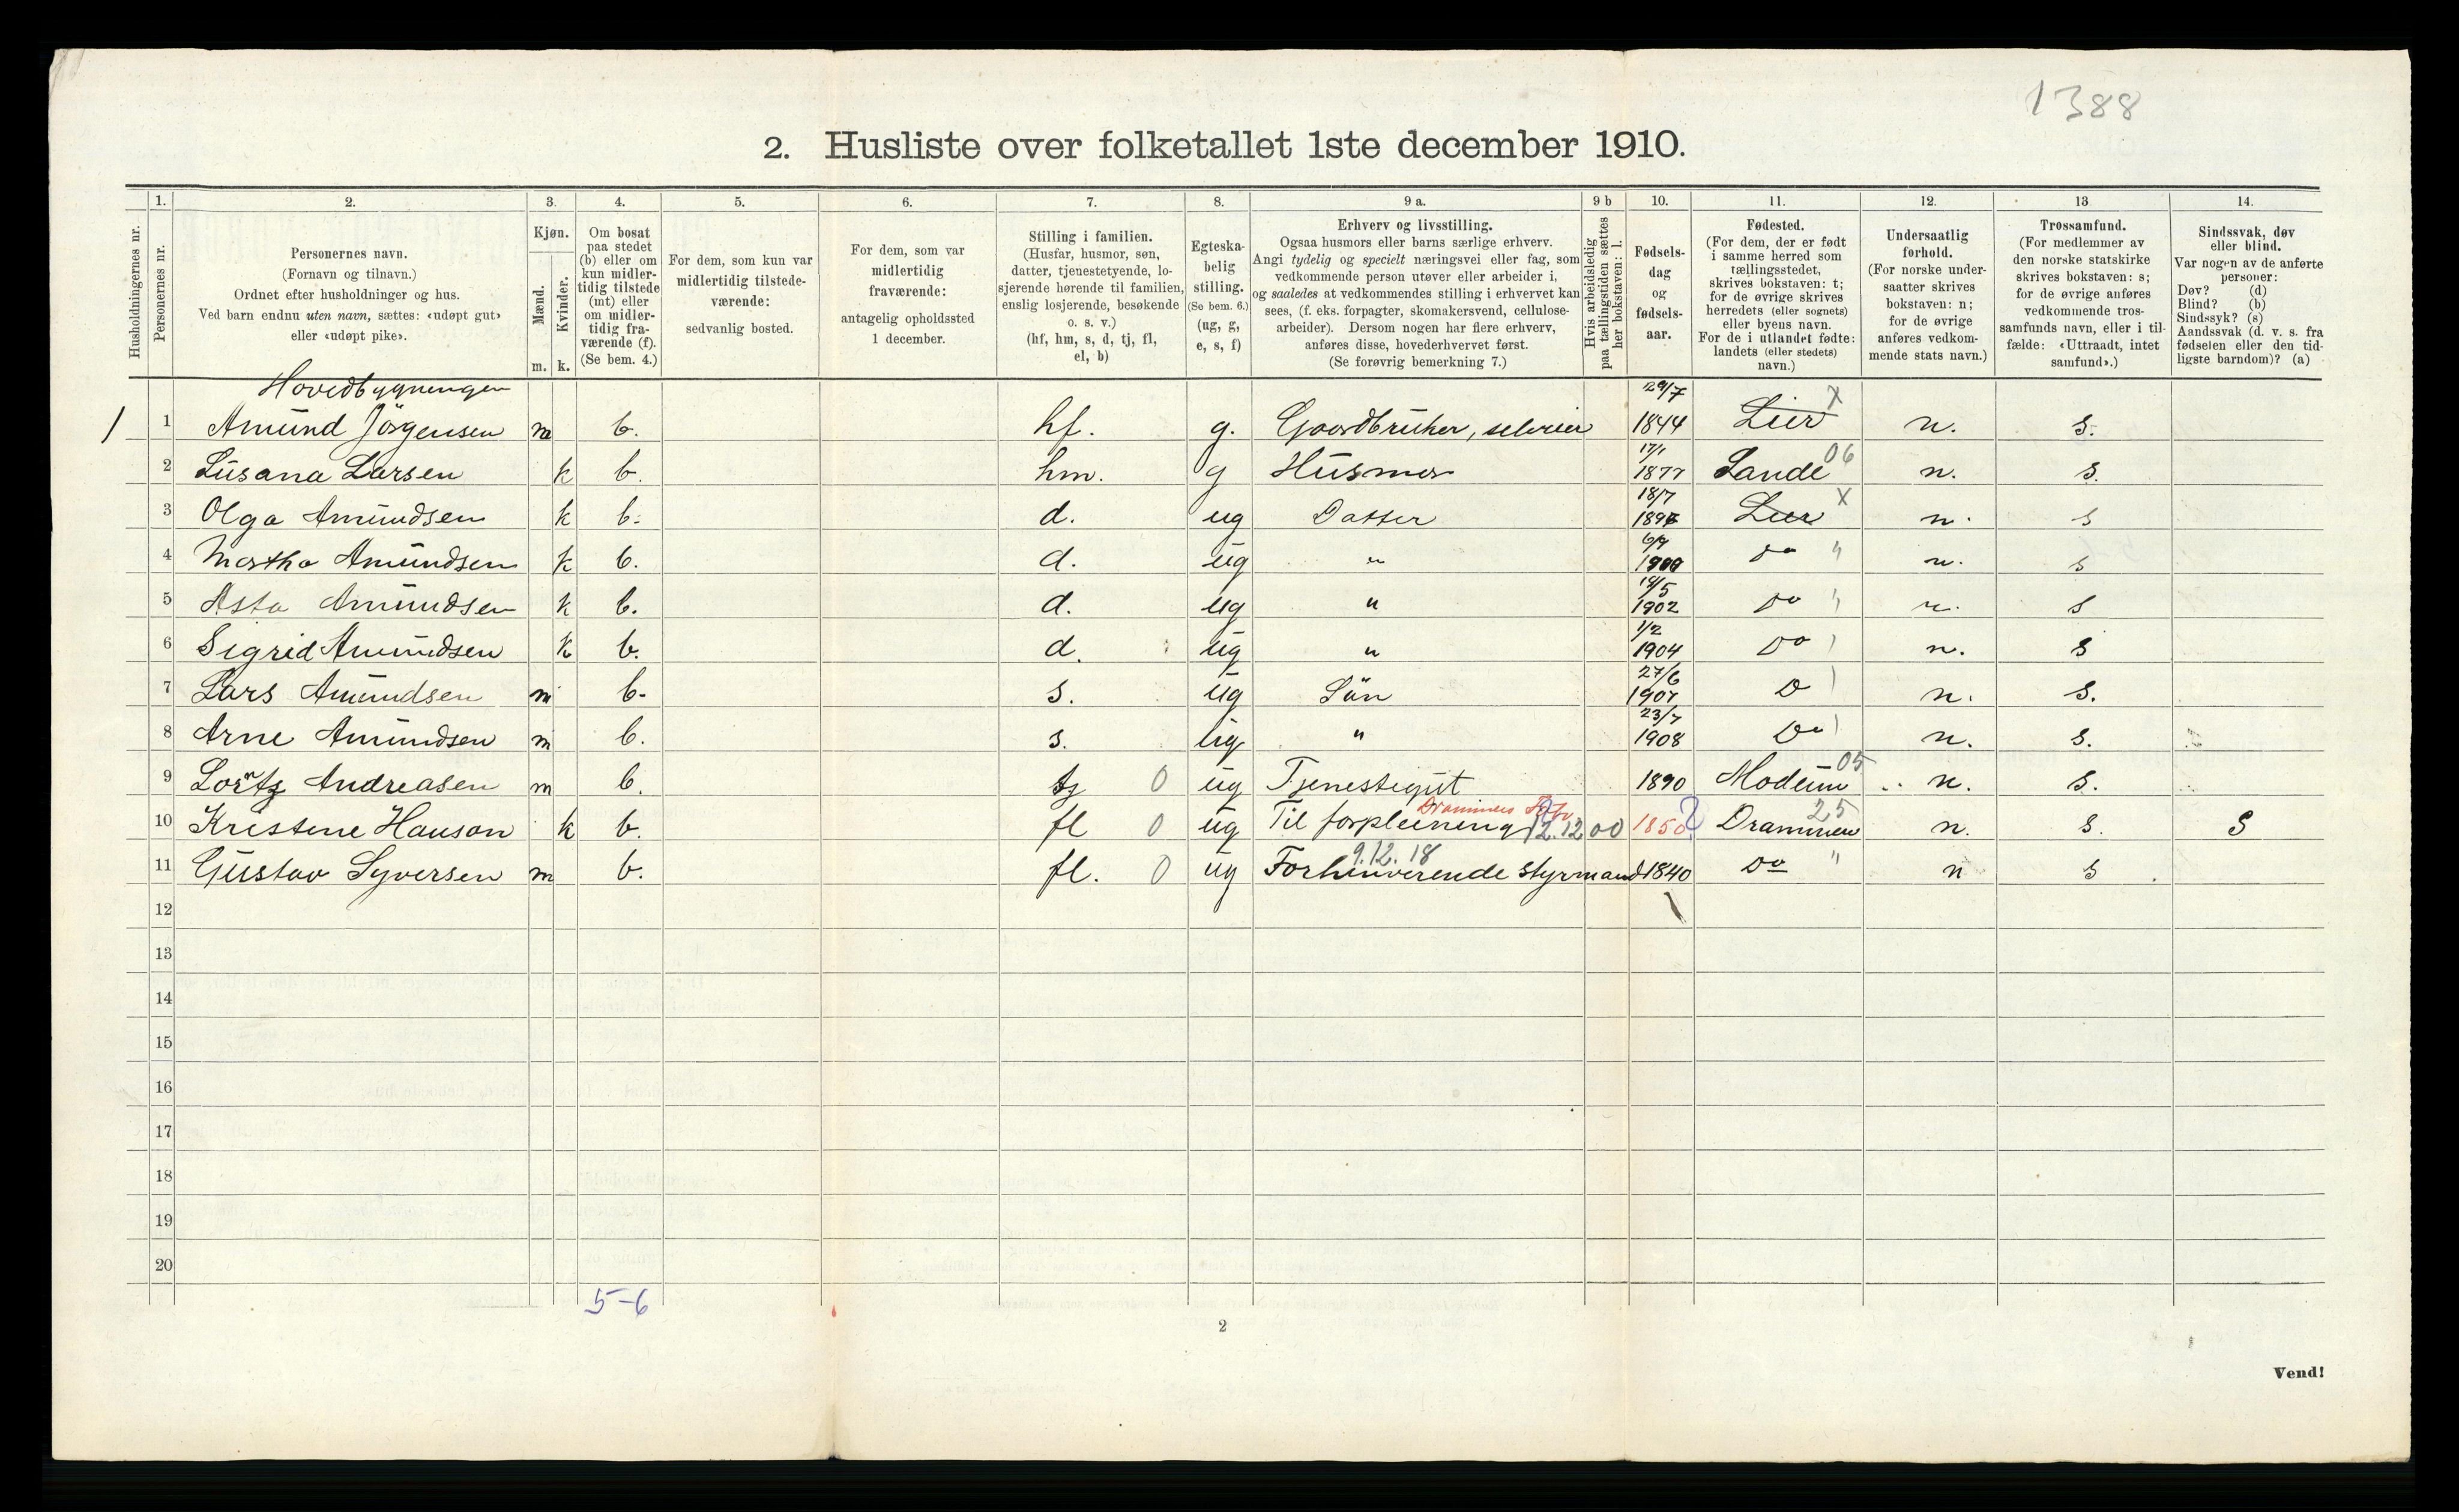 1388
2. Husliste over folketallet 1ste december 1910.
1. 2. 3. 4. 5. 6. 7. 8. 9 a. 9 b 10. 11. 12. 13 14.
Husholdningernes nr.
Personernes nr.
Personernes navn.
(Fornavn og tilnavn.)
Ordnet efter husholdninger og hus.
Ved barn endnu uten navn, sættes: «udøpt gut»
eller «udøpt pike».
Kjøn.
Mænd.
Kvinder.
m. k.
Om bosat
paa stedet
(b) eller om
kun midler-
tidig tilstede
(mt) eller
om midler-
tidig fra-
værende (f).
(Se bem. 4.)
For dem, som kun var
midlertidig tilstede-
værende:
sedvanlig bosted.
For dem, som var
midlertidig
fraværende:
antagelig opholdssted
1 december.
Stilling i familien.
(Husfar, husmor, søn,
datter, tjenestetyende, lo-
sjerende hørende til familien,
enslig losjerende, besøkende
o. s. v.)
(hf, hm, s, d, tj, fl,
el, b)
Egteska-
belig
stilling.
(Se bem. 6.)
(ug, g,
e, s, f)
Erhverv og livsstilling.
Ogsaa husmors eller barns særlige erhverv.
Angi tydelig og specielt næringsvei eller fag, som
vedkommende person utøver eller arbeider i,
og saaledes at vedkommendes stilling i erhvervet kan
sees, (f. eks. forpagter, skomakersvend, cellulose-
arbeider). Dersom nogen har flere erhverv,
anføres disse, hovederhvervet først.
(Se forøvrig bemerkning 7.)
Hvis arbeidsledig
paa tællingstiden sættes
her bokstaven: l.
Fødsels-
dag
og
fødsels-
aar.
Fødested.
(For dem, der er født
i samme herred som
tællingsstedet,
skrives bokstaven: t;
for de øvrige skrives
herredets (eller sognets)
eller byens navn.
For de i utlandet fødte:
landets (eller stedets)
navn.)
Undersaatlig
forhold.
(For norske under-
saatter skrives
bokstaven: n;
for de øvrige
anføres vedkom-
mende stats navn.)
Trossamfund.
(For medlemmer av
den norske statskirke
skrives bokstaven: s;
for de øvrige anføres
vedkommende tros-
samfunds navn, eller i til-
fælde: «Uttraadt, intet
samfund».)
Sindssvak, døv
eller blind.
Var nogen av de anførte
personer:
Døv? (d)
Blind? (b)
Sindssyk? (s)
Aandssvak (d. v. s. fra
fødselen eller den tid-
ligste barndom)? (a)
Hovedbygningen
1 1 Amund Jörgensen m b. hf. g. Gaardbruker, selveier 29/7 1844 Lier X n. s.
2 Susana Larsen k b. hm. g Husmor 17/1 1877 Sande 06 n. s.
3 Olga Amundsen k b. d. ug Datter 18/7 Lier X n. s
4 Martha Amundsen k b. d. ug " 1900 Do " n. s
5 Asta Amundsen k b. d. ug " 1902 Do " n. s
6 Sigrid Amundsen k b. d. ug " 1/2 1904 Do n. s
7 Lars Amundsen m b. s. ug Sön 27/6 1907 D n. s.
8 Arne Amundsen m b. s. ug " 23/7 1908 Do n. s.
9 Lorntz Andreasen m b. tj 0 ug Tjenestegut 1890 Modum 05 n. s.
10 Kristine Hanson k b. fl 0 ug Til forpleining Drammens 12.12 00 1850 ? Drammen 25 n. s. S
11 Gustav Syversen m b. fl. 0 ug Forhenverende styrmand 9.12.18 1840 Do " n s
12
13
14
15
16
17
18
19
20
5-6
2
Vend!